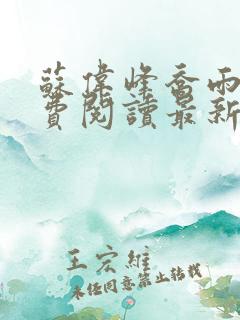 蘇偉峰喬雨
費閱讀最新
王宏維
未經同意禁止轉載